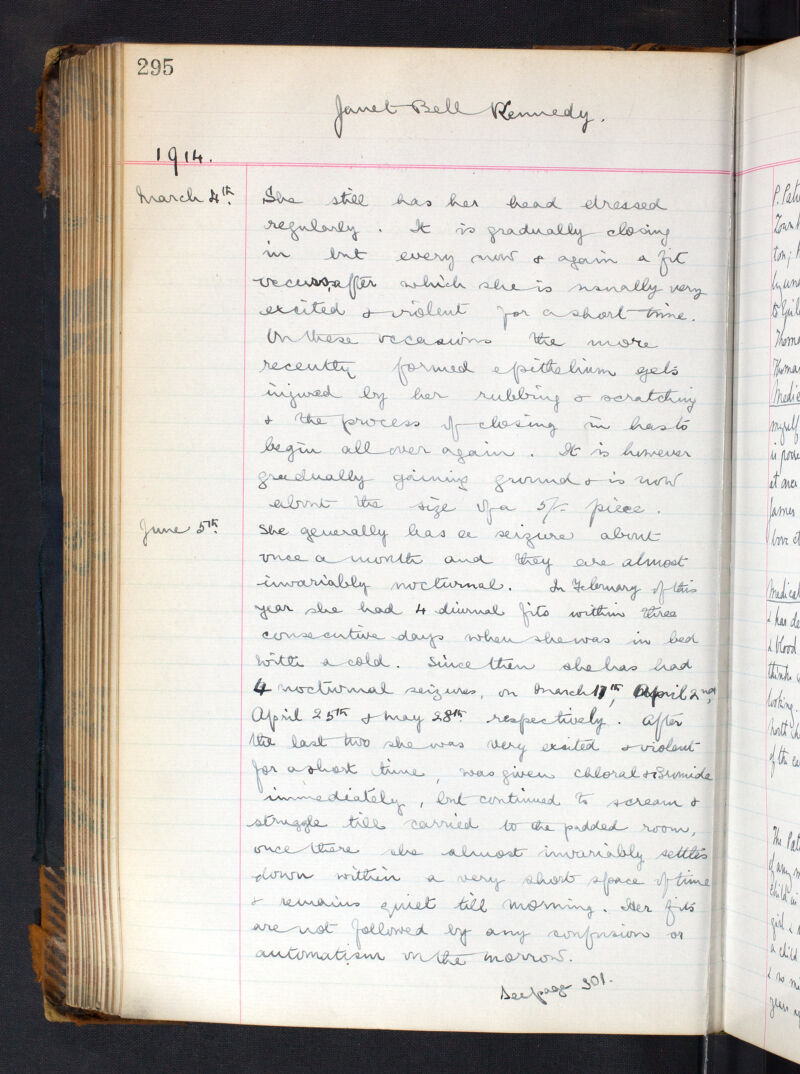 295
Janet Bell Kennedy.
1914.
March 4th. She still has her head dressed
regularly. It is gradually closing
in but every now & again a fit
occurs, after which she is usually very
excited & violent for a short time.
On these occasions the more
recently formed epithelium gets
injured by her rubbing & scratching
& the process of closing in has to
begin all over again. It is however
gradually gaining ground & is now
about the size of a 5/- piece.
June 5th. She generally has a seizure about
once a month and they are almost
invariably nocturnal. In February of this
year she had 4 diurnal fits within three
consecutive days when she was in bed
with a cold. Since then she has had
4 nocturnal seizures, on March 17th, April 2nd,
April 25th & May 28th respectively. After
the last two she was very excited & violent
for a short time, was given chloral & Bromide
immediately, but continued to scream &
struggle till carried to the padded room,
once there she almost invariably settles
down within a very short space of time
& remains quiet till morning. Her fits
are not followed by any confusion or
automatism on the morrow.
See page 301.